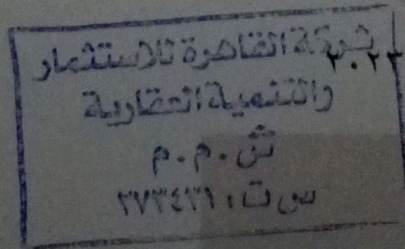 شركة القاهرة للاستثمار
٢٠٢٣
والتنمية العقارية
ش.م.م
س ت: ٢٧٣٤٣١